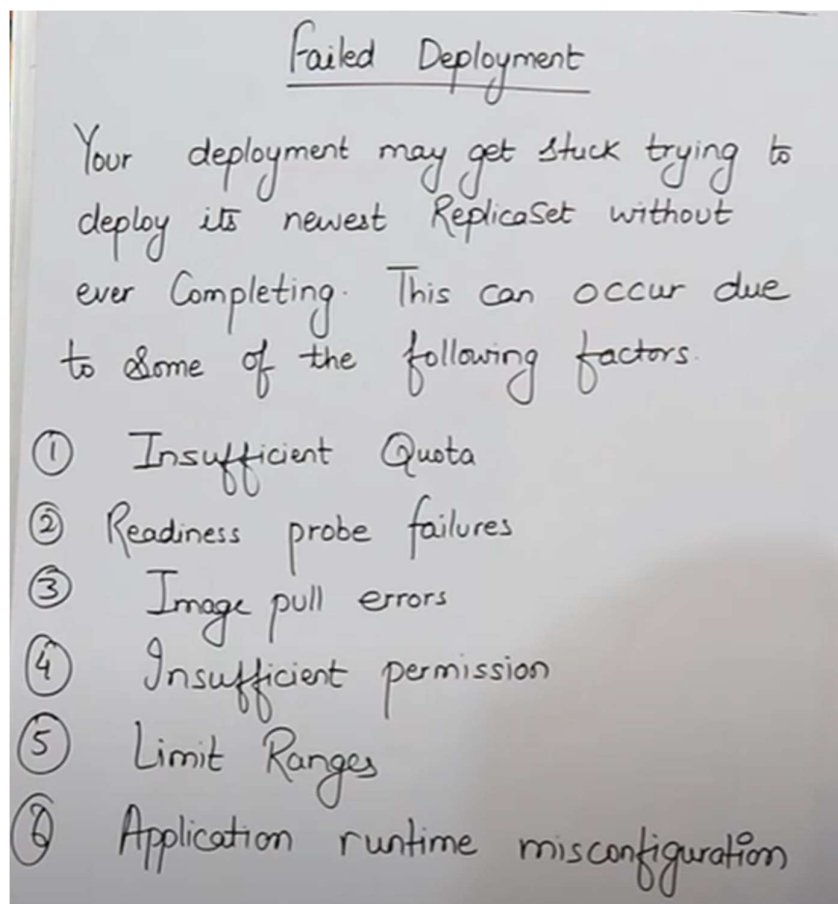 Failed Deployment
Your deployment may get stuck trying to
deploy its newest ReplicaSet without
ever Completing. This can occur due
to Some of the following factors.
① Insufficient Quota
② Readiness probe failures
③ Image pull errors
④ Insufficient permission
⑤ Limit Ranges
⑥ Application runtime misconfiguration